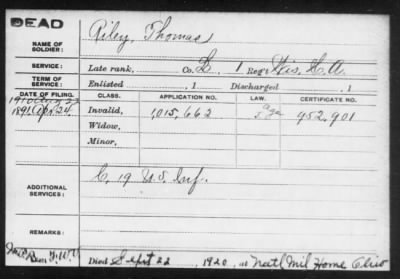 DEAD
NAME OF SOLDIER: Riley, Thomas
SERVICE: Late rank, Co. L, 1 Reg't Wis. H.A.
TERM OF SERVICE: Enlisted , 1 Discharged , 1
DATE OF FILING. CLASS. APPLICATION NO. LAW. CERTIFICATE NO.
1891 Apr 24 Invalid, 1,015,662 952,901
Widow,
Minor,
ADDITIONAL SERVICES: C. 19 U.S. Inf.
REMARKS:
Died Sept 22, 1920, at Natl Mil Home Ohio